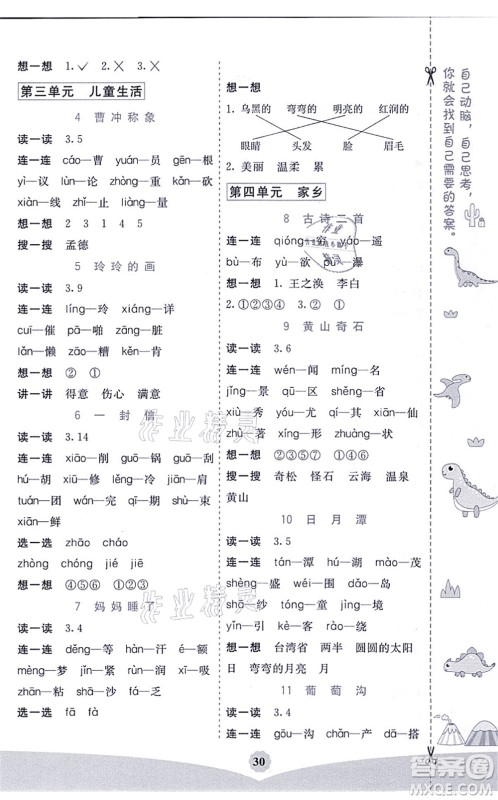 想一想 1.✓ 2.✗ 3.✗
第三单元 儿童生活
4 曹冲称象
读一读 3.5
连一连 cáo—曹 yuán—员 gēn—根
yì—议 lùn—论 zhòng—重 chèng—秤
xiàn—线 zhǐ—止 liàng—量
想一想 2 3 1 4 5
搜一搜 孟德
5 玲玲的画
读一读 3.9
连一连 líng—玲 xiáng—详
cuī—催 pā—啪 duān—端
lǎn—懒 chǔ—楚 kěn—肯
想一想 ② ①
讲一讲 得意 伤心 满意
6 一封信
读一读 3.14
连一连 xiāo—削 guō—锅 guā—刮
hú—胡 xiū—修 lěng—冷 jiān—肩
tuán—团 wán—完 qī—期
xiān—鲜
选一选 zhāo cháo
zhòng chóng jié jiē
想一想 ④⑤⑥ ①②③
7 妈妈睡了
读一读 3.4
连一连 táng—糖 hàn—汗 é—额
mèng—梦 chén—沉 xì—细
zhān—粘 fá—乏
选一选 fà fà
想一想
1.乌黑的 弯弯的 明亮的 红润的
眼睛 头发 脸 眉毛
2.美丽 温柔 累
第四单元 家乡
8 古诗二首
连一连 qióng—穷 yáo—遥
bù—布 yù—欲 pù—瀑
想一想 1.王之涣 李白
2.①③④ 3.② ①
9 黄山奇石
读一读 3.6
连一连 wén—闻 míng—名
jǐng—景 qū—区 shěng—省
xiù—秀 yóu—尤 qí—其
zhù—著 xíng—形 zhuàng—状
想一想 ③⑤②④①
搜一搜 奇松 怪石 云海 温泉
黄山
10 日月潭
读一读 3.5
连一连 tán—潭 hú—湖 mào—茂
shèng—盛 wéi—围 huán—环
shā—纱 tóng—童 jìng—境
yǐn—引 kè—客
想一想 台湾省 两半 圆圆的太阳
日 弯弯的月亮 月
11 葡萄沟
读一读 3.4
连一连 gōu—沟 chǎn—产
自己动脑，自己思考，
你就会找到自己需要的答案。
作业精灵
作业精灵
30
答案圈
MXQE.COM